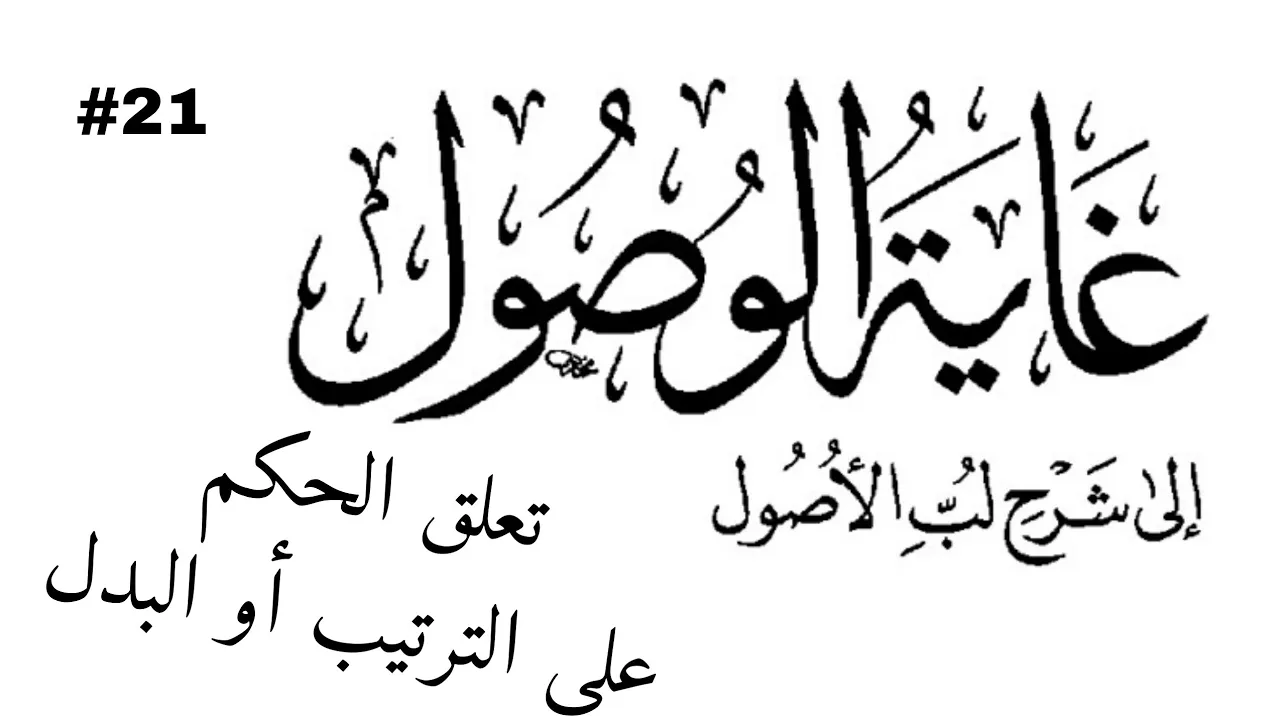 #21
غَايَةُ الوُصُول
إلىٰ شَرْحِ لُبِّ الأُصُول
تعلق الحكم
على الترتيب أو البدل